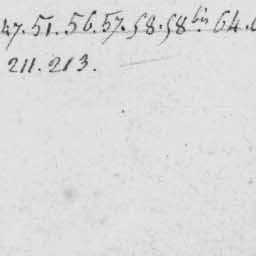 47. 51. 56. 57. 58. 58 bis. 64.
211. 213.